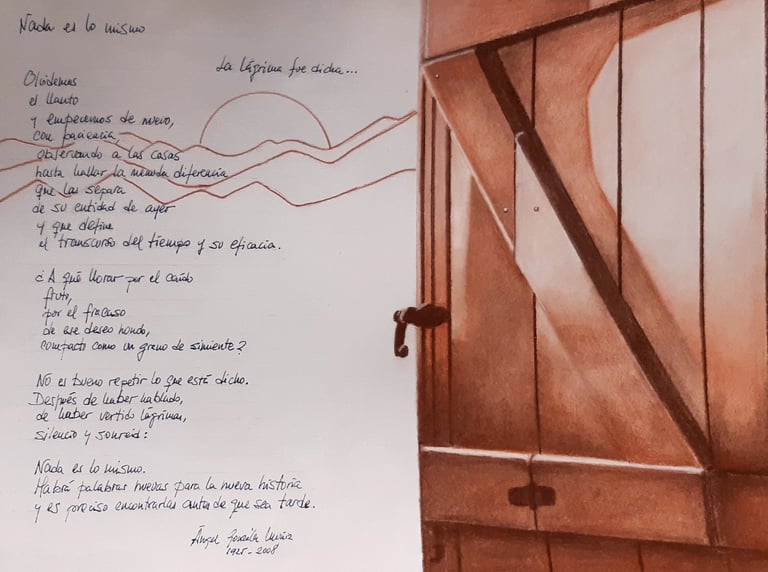 Nada es lo mismo
La lágrima fue dicha...
Olvidemos
el llanto
y empecemos de nuevo,
con paciencia,
observando a las cosas
hasta hallar la menuda diferencia
que las separa
de su entidad de ayer
y que define
el transcurso del tiempo y su eficacia.
¿A qué llorar por el caído
fruto,
por el fracaso
de ese deseo hondo,
compacto como un grano de simiente?
No es bueno repetir lo que está dicho.
Después de haber hablado,
de haber vertido lágrimas,
silencio y sonreid:
Nada es lo mismo.
Habrá palabras nuevas para la nueva historia
y es preciso encontrarlas antes de que sea tarde.
Ángel González Muñiz
1925 - 2008